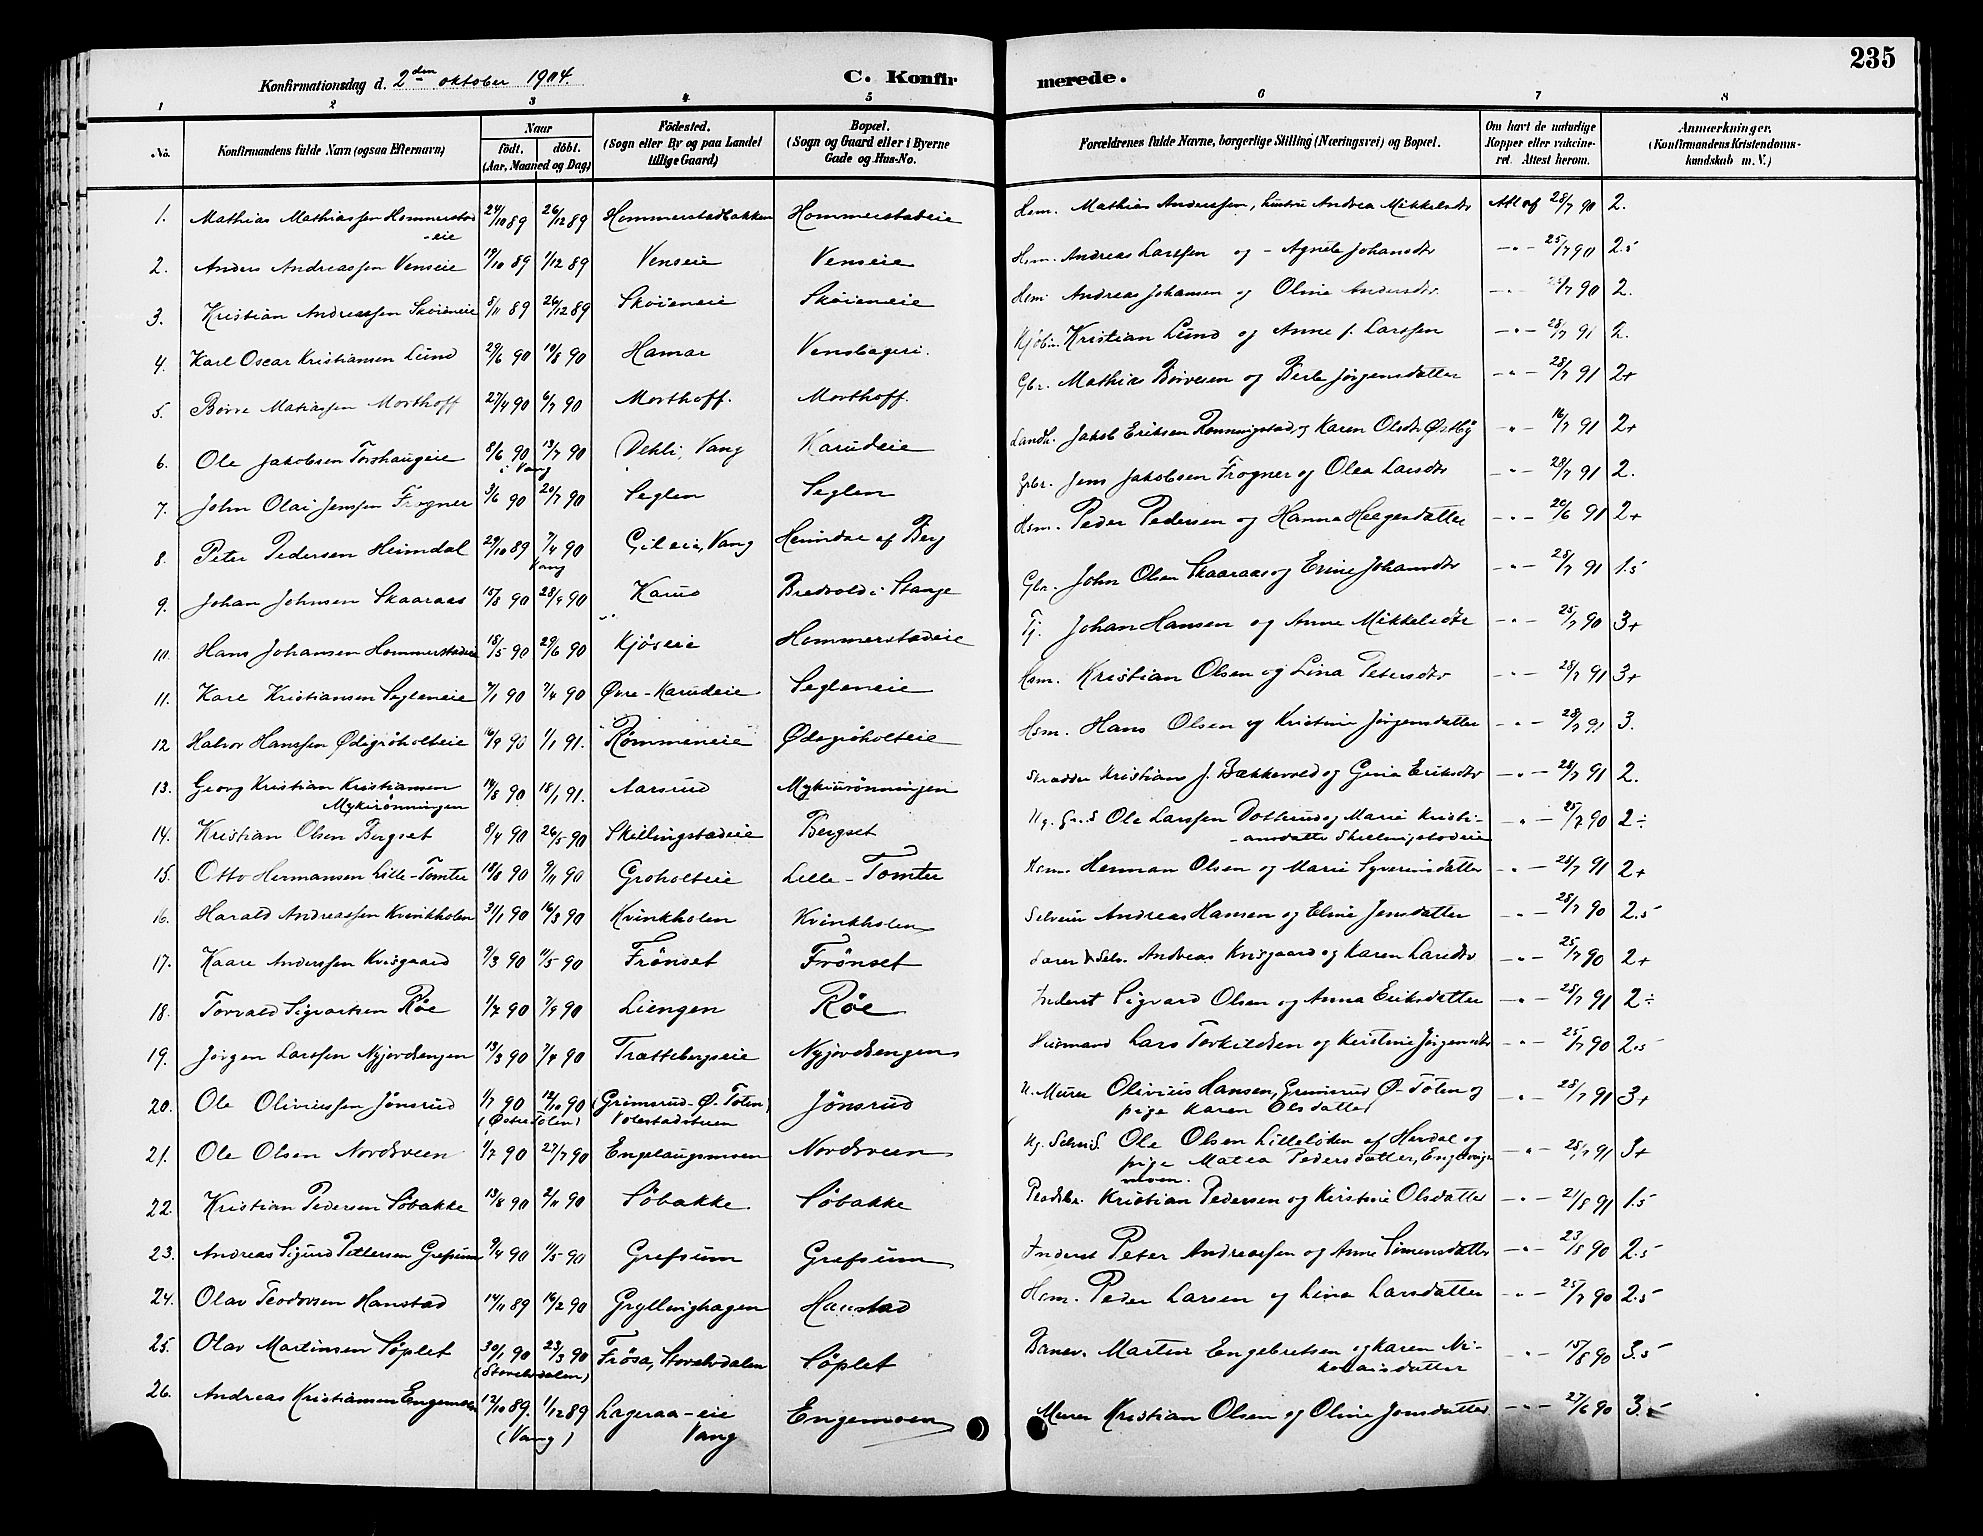 235
Konfirmationsdag d. 2den oktober 1904. C. Konfirmerede.
1 2 3 4 5 6 7 8
No.
Konfirmandens fulde Navn (ogsaa Efternavn)
Naar
født. døbt.
(Aar, Maaned og Dag)
Fødested.
(Sogn eller By og paa Landet
tillige Gaard)
Bopæl.
(Sogn og Gaard eller i Byerne
Gade og Hus-No.
Forældrenes fulde Navne, borgerlige Stilling (Næringsvei) og Bopæl.
Om havt de naturlige
Kopper eller vakcine-
ret. Attest herom.
Anmærkninger.
(Konfirmandens Kristendoms-
kundskab m. V.)
1. Mathias Mathiassen Hommerstad 24/10 89 26/12 89 Hommerstadbakken Hommerstadeie Hsm. Mathias Anderssen, hustru Andrea Mikkelsdtr Att af 28/7 90 2.
-eie
2. Anders Andreassen Venseie 19/10 89 1/12 89 Venseie Venseie Hsm. Andreas Larssen og - Agnete Johansdtr -"- 25/7 90 2.5
3. Kristian Andreassen Skøieneie 5/11 89 26/12 89 Skøieneie Skøieneie Hsm. Andreas Johansen og Oline Andersdtr. -"- 25/7 90 2.
4. Karl Oscar Kristiansen Lund 29/6 90 10/8 90 Hamar Vensbageri. Kristian Lund og Anne f. Larssen -"- 28/7 91 2.
5. Børre Matiassen Morthoff 27/4 90 6/7 90 Morthoff. Morthoff. Gbr. Mathias Børresen og Berte Jørgensdatter -"- 28/7 91 2+
6. Ole Jakobsen Torshaugeie 8/6 90 13/7 90 Dehli, Vang Karudeie Landh. Jakob Eriksen Rønningstad og Karen Olsdtr Østby -"- 16/7 91 2+
i Vang
7. John Olai Jenssen Frogner 3/6 90 20/7 90 Seglen Seglen Gbr. Jens Jakobsen Frogner og Olea Larsdtr -"- 28/7 91 2.
8. Peter Pedersen Heimdal 29/10 89 7/4 90 Gileie, Vang Heimdal af Berg Hsm. Peder Pedersen og Hanna Helgesdatter -"- 20/6 91 2+
Vang
9. Johan Johnsen Skaaraas 15/8 90 28/9 90 Karud Bredvold i Stange Gbr. John Olsen Skaaraas og Eline Johansdtr -"- 28/7 91 1.5
10. Hans Johansen Hommerstadeie 18/5 90 29/6 90 Kjøseie Hommerstadeie Tj. Johan Hansen og Anne Mikkelsdtr -"- 25/7 90 3+
11. Karl Kristiansen Segleneie 7/1 90 7/4 90 Øvre-Karudeie Segleneie Hsm. Kristian Olsen og Lina Petersdtr -"- 28/7 91 3+
12 Halvor Hanssen Ødegroholteie 16/9 90 1/1 91. Rømmeneie Ødegroholteie Hsm. Hans Olsen og Kristine Jørgensdatter -"- 28/7 91 3.
13. Georg Kristian Kristiansen 14/8 90 18/1 91. Aarsrud Mykiurønningen Skrædder Kristians J. Bækkevold og Gina Eriksdtr -"- 28/7 91 2.
Mykirønningen
14. Kristian Olsen Bergset 8/4 90 26/5 90 Skillingstadeie Bergset Ug. Gr. S Ole Larssen Dotterud og Marie Kristi- -"- 25/7 90 2÷
-ansdatter Skillingstadeie
15. Otto Hermansen Lille-Tomter 18/8 90 9/11 90 Groholteie Lille-Tomter Hsm. Herman Olsen og Marie Syverinsdatter -"- 28/7 91 2+
16. Harald Andreassen Kvinkholen 31/1 90 16/3 90 Kvinkholen Kvinkholen Selveier Andreas Hansen og Eline Jensdatter -"- 28/7 90 2.5
17. Kaare Anderssen Kvisgaard 9/3 90 11/5 90 Frønset Frønset Lærer & Selv. Andreas Kvisgaard og Karen Larsdtr -"- 25/7 90 2+
18. Torvald Sigvartsen Røe 1/7 90 7/9 90 Liengen Røe Inderst Sigvard Olsen og Anna Eriksdatter -"- 28/7 91 2÷
19. Jørgen Larssen Nyjordsengen 13/3 90 7/4 90 Trættebergseie Nyjordsengen Husmand Lars Torkildsen og Kirstine Jørgensdtr -"- 25/7 90 2.5
20. Ole Oliviussen Jønsrud 1/7 90 12/10 90 (Grimsrud-Ø. Toten) Jønsrud U. Murer Olivius Hansen, Grimsrud Ø. Toten og -"- 28/7 91 3+
(Øster Toten) Volestadstuen pige Karen Olsdatter
21. Ole Olsen Nordsveen 1/7 90 27/7 90 Engelaugsmoen Nordsveen Ug. Ole Olsen Lilleløken af Herdal og -"- 28/7 91 3+
pige Matea Pedersdatter, Engelaugs
moen.
22. Kristian Pedersen Søbakke 13/8 90 2/11 90 Søbakke. Søbakke Kristian Pedersen og Kirstine Olsdatter -"- 21/8 91 1.5
23. Andreas Sigurd Pettersen Grefsum 9/4 90 11/5 90 Grefsum Grefsum Inderst Peter Andreassen og Anne Simensdatter -"- 23/8 90 2.5
24. Olav Teodorsen Hanstad 14/11 89 16/2 90 Gryllinghagen Hanstad Hsm. Peder Larsen og Lina Larsdatter -"- 25/7 90 2.5
25. Olav Martinsen Søplet 30/1 90 23/3 90 Frøsa, Storelvdalen Søplet Banev. Martin Engebretsen og Karen Ni- -"- 15/8 90 3.5
(Storelvdalen) kolaisdatter
26. Andreas Kristiansen Engemoen 12/10 89. 1/12 89 Lageraa-eie Engemoen Murer Kristian Olsen og Oline Jonsdatter. -"- 27/6 90 3.5
(Vang) Vang